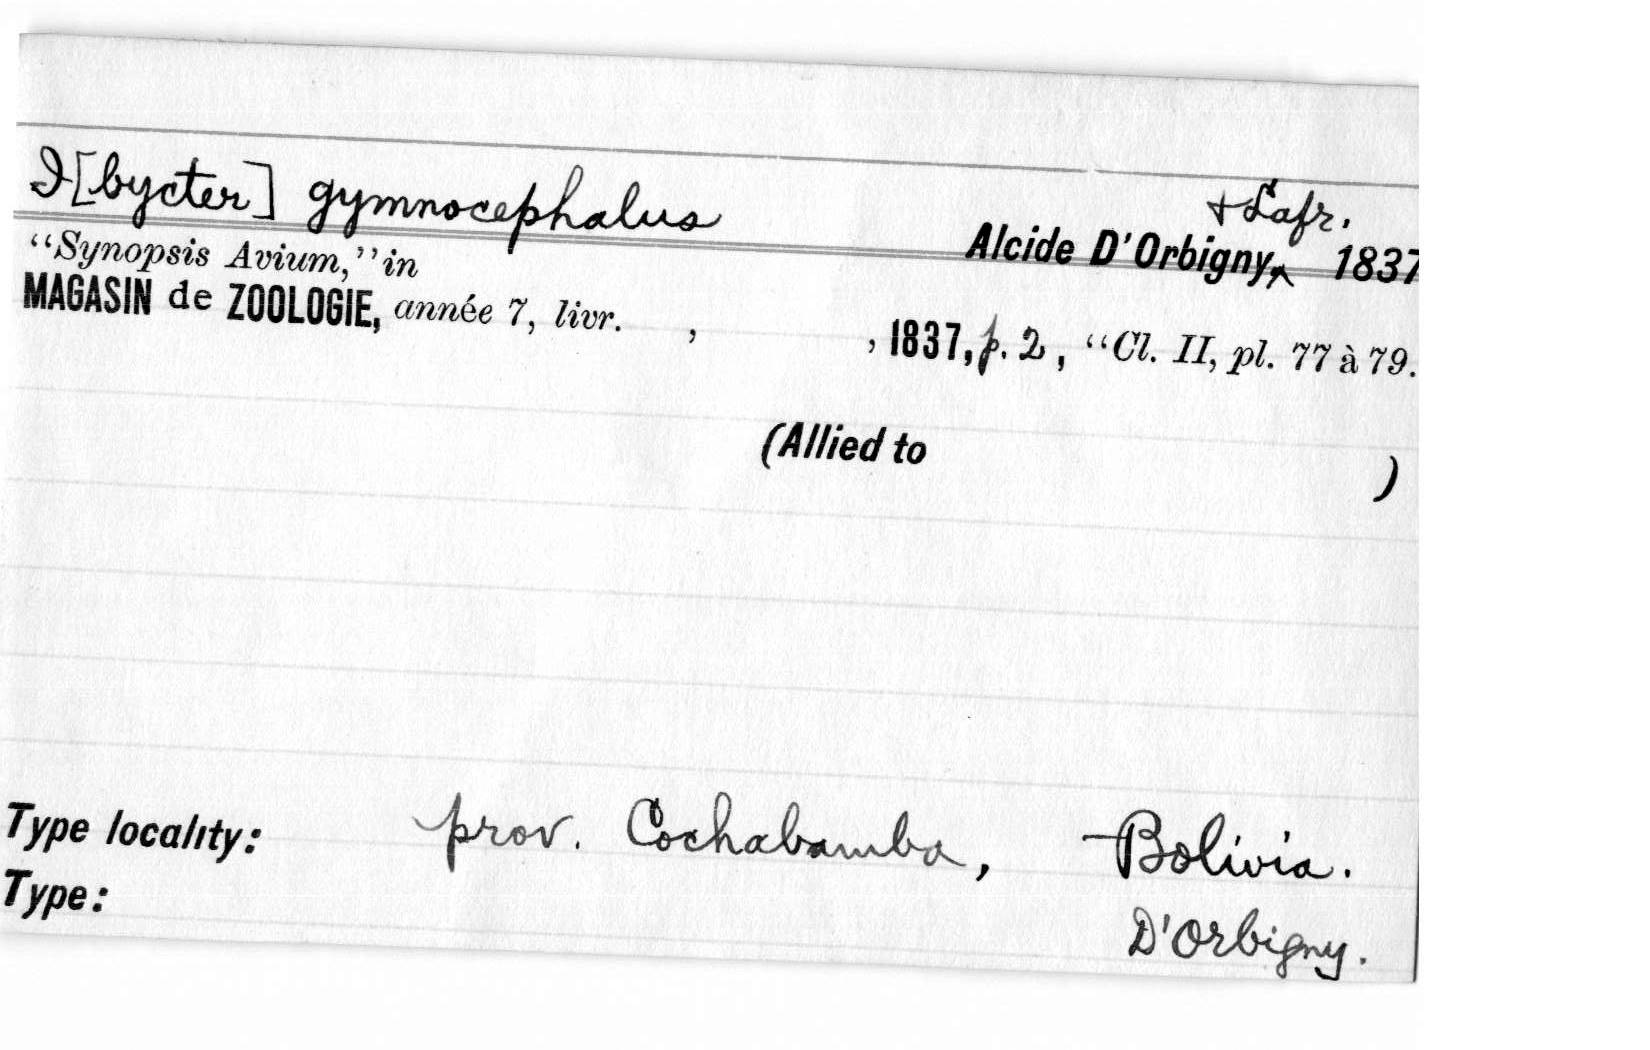 I[bycter] gymnocephalus
+ Lafr.
Alcide D'Orbigny‸ 1837
“Synopsis Avium,” in
MAGASIN de ZOOLOGIE, année 7, livr. , , 1837, p. 2, “Cl. II, pl. 77 à 79.
(Allied to )
Type locality: prov. Cochabamba, Bolivia.
Type: D'Orbigny.